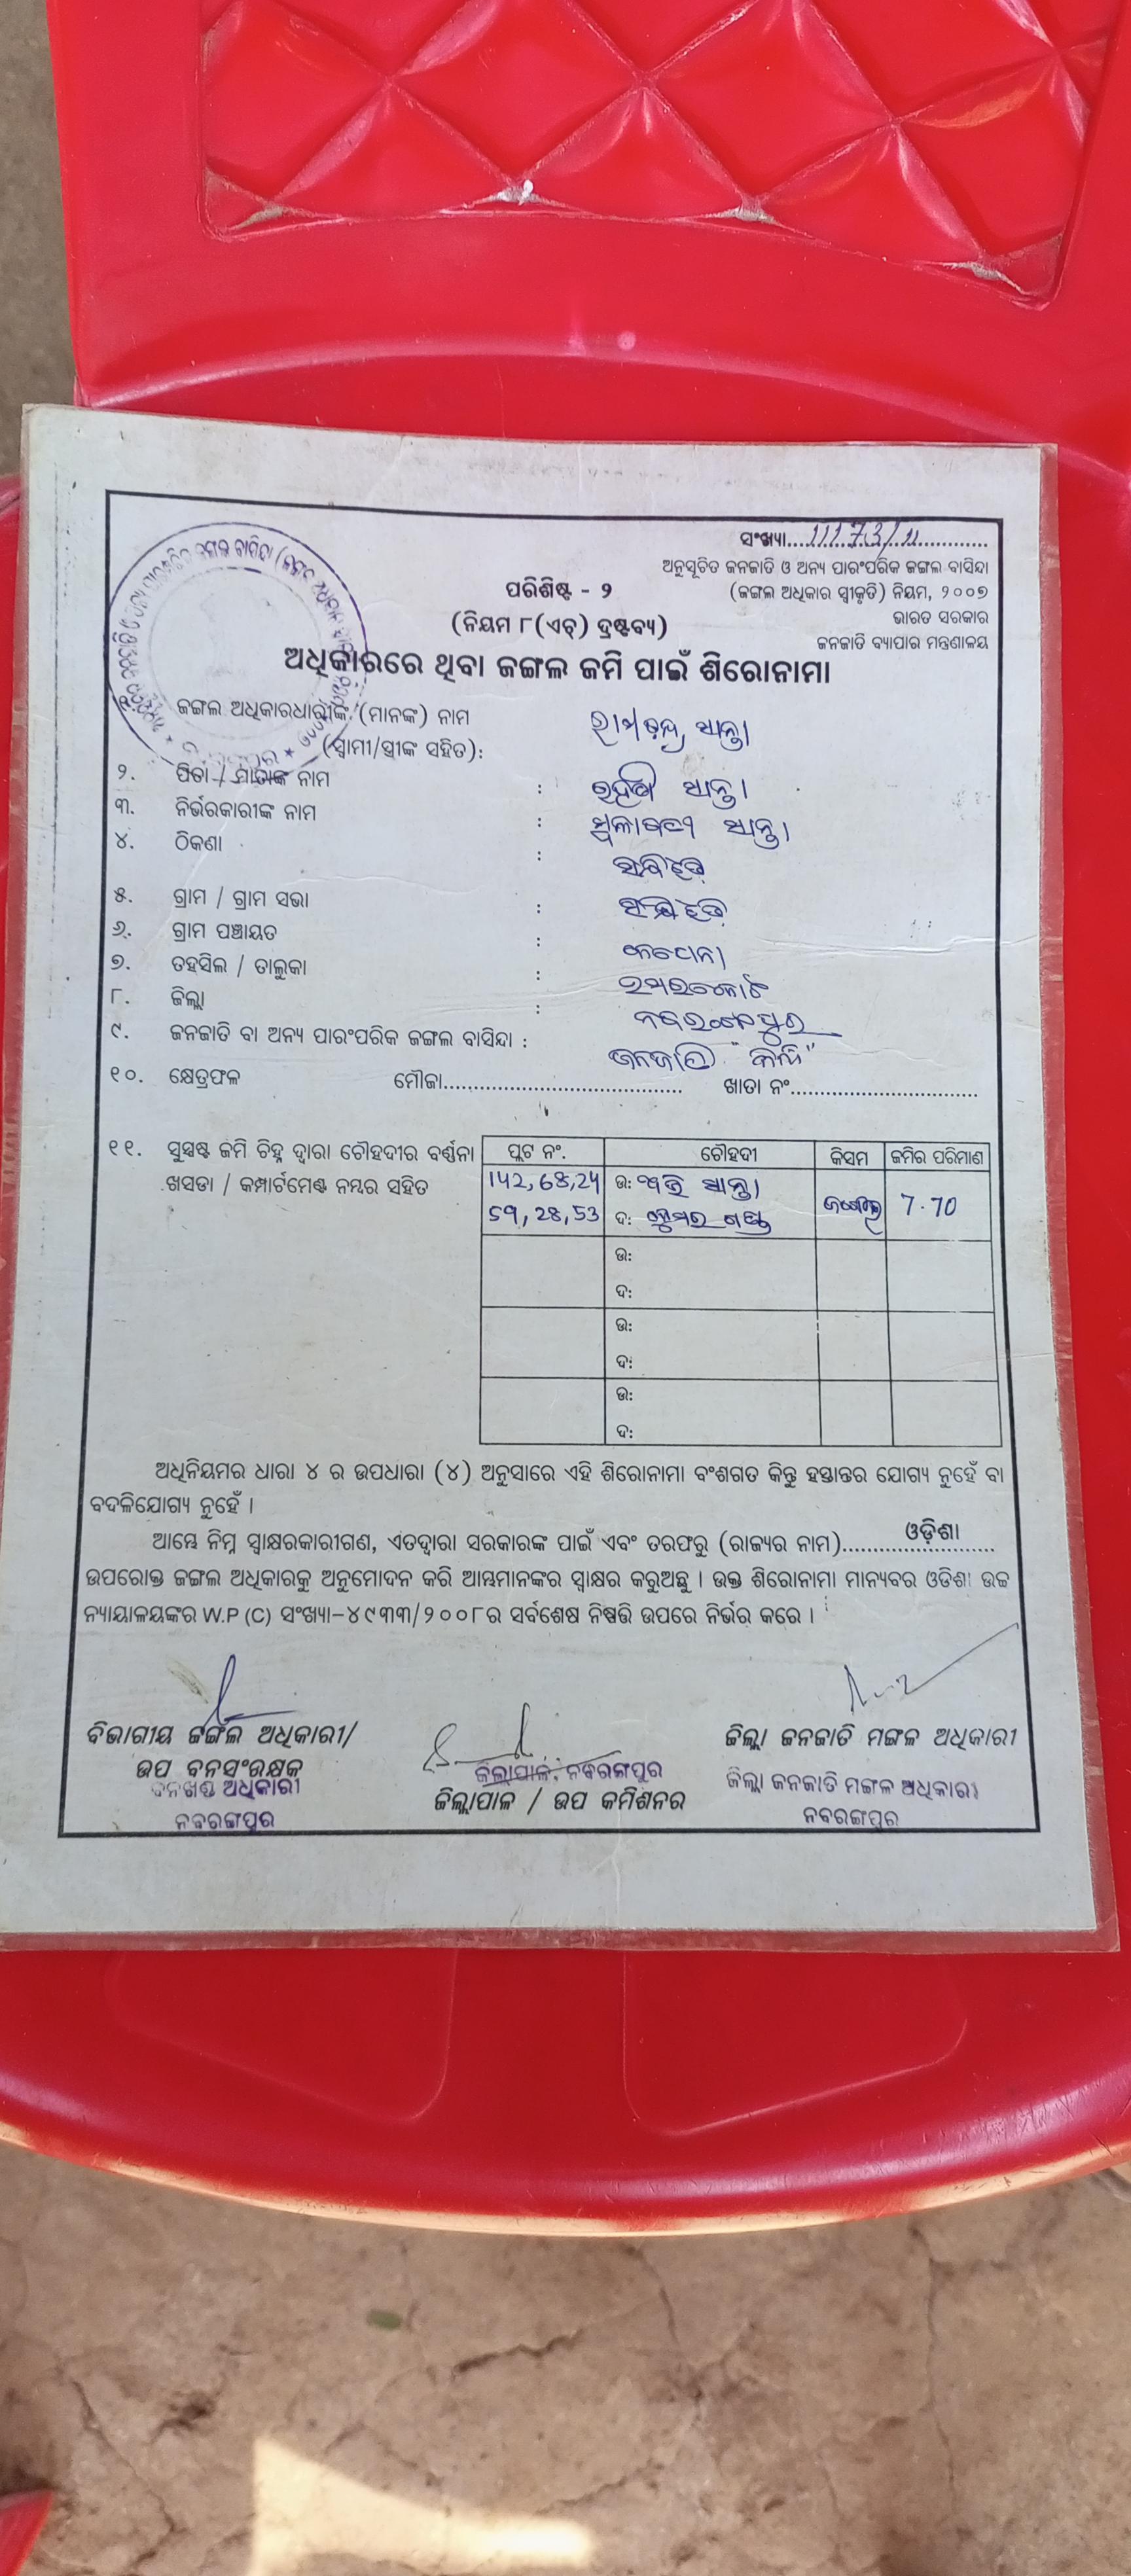 ସଂଖ୍ୟା..................................
ଅନୁସୂଚିତ ଜନଜାତି ଓ ଅନ୍ୟ ପାରଂପରିକ ଜଙ୍ଗଲ ବାସିନ୍ଦା
(ଜଙ୍ଗଲ ଅଧିକାର ସ୍ୱୀକୃତି) ନିୟମ, ୨୦୦୭
ଭାରତ ସରକାର
ଜନଜାତି ବ୍ୟାପାର ମନ୍ତ୍ରଣାଳୟ
ପରିଶିଷ୍ଟ - ୨
(ନିୟମ ୮(ଏଚ୍) ଦ୍ରଷ୍ଟବ୍ୟ)
ଅଧିକାରରେ ଥିବା ଜଙ୍ଗଲ ଜମି ପାଇଁ ଶିରୋନାମା
ଜଙ୍ଗଲ ଅଧିକାରଧାରୀଙ୍କ (ମାନଙ୍କ) ନାମ ରାମଚନ୍ଦ୍ର ସାନ୍ତା
(ସ୍ୱାମୀ/ସ୍ତ୍ରୀଙ୍କ ସହିତ):
୨. ପିତା / ମାତାଙ୍କ ନାମ : ସାନ୍ତା
୩. ନିର୍ଭରକାରୀଙ୍କ ନାମ : ସାନ୍ତା
୪. ଠିକଣା :
୫. ଗ୍ରାମ / ଗ୍ରାମ ସଭା :
୬. ଗ୍ରାମ ପଞ୍ଚାୟତ :
୭. ତହସିଲ / ତାଲୁକା : ଉମରକୋଟ
୮. ଜିଲ୍ଲା : ନବରଂଗପୁର
୯. ଜନଜାତି ବା ଅନ୍ୟ ପାରଂପରିକ ଜଙ୍ଗଲ ବାସିନ୍ଦା : ଜନଜାତି
୧୦. କ୍ଷେତ୍ରଫଳ ମୌଜା....................................... ଖାତା ନଂ...............................
୧୧. ସୁସ୍ପଷ୍ଟ ଜମି ଚିହ୍ନ ଦ୍ୱାରା ଚୌହଦୀର ବର୍ଣ୍ଣନା
ଖସଡା / କମ୍ପାର୍ଟମେଣ୍ଟ ନମ୍ବର ସହିତ
ପ୍ଲଟ ନଂ. ଚୌହଦୀ କିସମ ଜମିର ପରିମାଣ
142, 68, 24 ଉ: ସାନ୍ତା
59, 28, 53 ଦ: ଜଙ୍ଗଲ 7.70
ଉ:
ଦ:
ଉ:
ଦ:
ଉ:
ଦ:
ଅଧିନିୟମର ଧାରା ୪ ର ଉପଧାରା (୪) ଅନୁସାରେ ଏହି ଶିରୋନାମା ବଂଶଗତ କିନ୍ତୁ ହସ୍ତାନ୍ତର ଯୋଗ୍ୟ ନୁହେଁ ବା
ବଦଳିଯୋଗ୍ୟ ନୁହେଁ ।
ଆମ୍ଭେ ନିମ୍ନ ସ୍ୱାକ୍ଷରକାରୀଗଣ, ଏତଦ୍ୱାରା ସରକାରଙ୍କ ପାଇଁ ଏବଂ ତରଫରୁ (ରାଜ୍ୟର ନାମ)......ଓଡ଼ିଶା......
ଉପରୋକ୍ତ ଜଙ୍ଗଲ ଅଧିକାରକୁ ଅନୁମୋଦନ କରି ଆମ୍ଭମାନଙ୍କର ସ୍ୱାକ୍ଷର କରୁଅଛୁ । ଉକ୍ତ ଶିରୋନାମା ମାନ୍ୟବର ଓଡିଶା ଉଚ୍ଚ
ନ୍ୟାୟାଳୟଙ୍କର W.P (C) ସଂଖ୍ୟା-୪୯୩୩/୨୦୦୮ର ସର୍ବଶେଷ ନିଷ୍ପତ୍ତି ଉପରେ ନିର୍ଭର କରେ ।
ବିଭାଗୀୟ ଜଙ୍ଗଲ ଅଧିକାରୀ/
ଉପ ବନସଂରକ୍ଷକ
ବନଖଣ୍ଡ ଅଧିକାରୀ
ନବରଙ୍ଗପୁର
ଜିଲ୍ଲାପାଳ, ନବରଙ୍ଗପୁର
ଜିଲ୍ଲାପାଳ / ଉପ କମିଶନର
ଜିଲ୍ଲା ଜନଜାତି ମଙ୍ଗଳ ଅଧିକାରୀ
ଜିଲ୍ଲା ଜନଜାତି ମଙ୍ଗଳ ଅଧିକାରୀ
ନବରଙ୍ଗପୁର